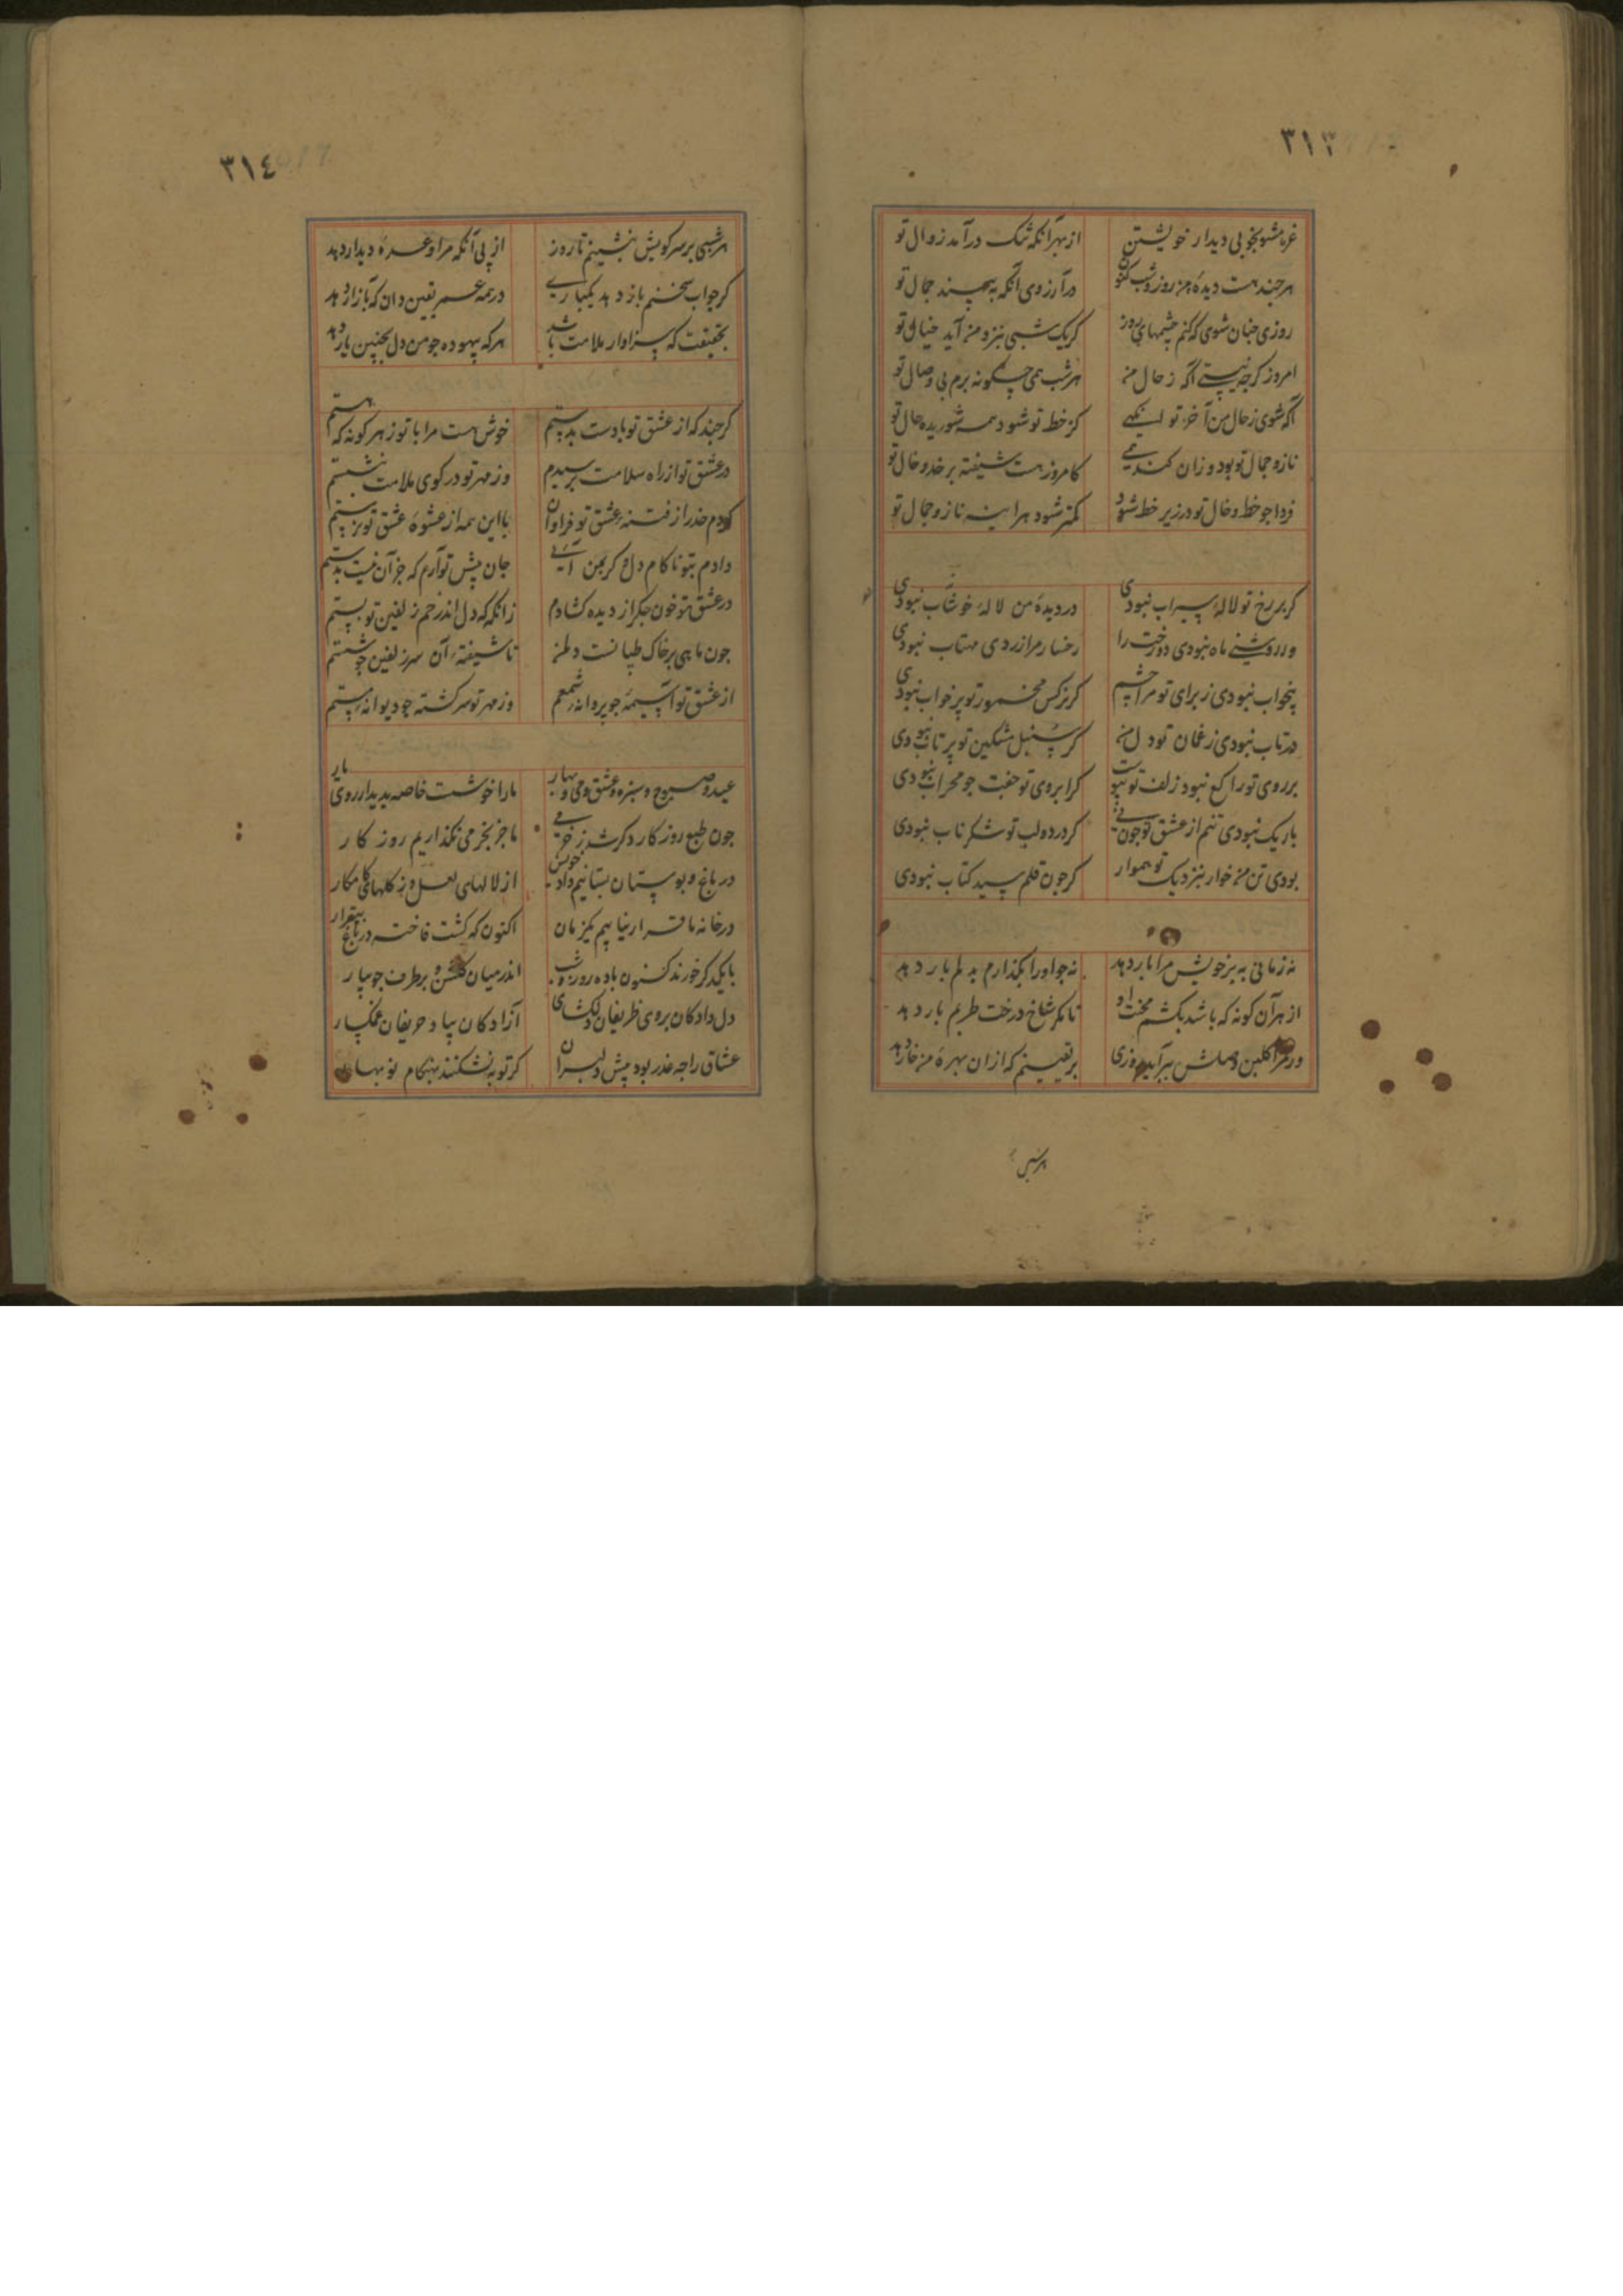 ٣١٣
غره مشو بخوبی دیدار خویشتن از بهر آنکه شک درآمد زوال تو
هرچند هست دیدهٔ من روز و شب کنون در آرزوی آنکه به بیند جمال تو
روزی چنان شوی که کنم چشمهای روز کر یک شبی بنزد من آید خیال تو
امروز کرچه نیستی آکه ز حال من هر شب همی چکونه برم بی وصال تو
آکه شوی ز حال من آخر تو کز خط تو شود همه شوریده حال تو
ناز و جمال تو بود و زان کامروز هست شیفته بر خد و خال تو
فردا جو خط و خال تو در زیر خط شود کمتر شود هراینه ناز و جمال تو
کر بر رخ تو لالهٔ سیراب نبودی در دیدهٔ من لالهٔ خوشاب نبودی
ور روشنی ماه نبودی دو رخت را رخسار مرا زردی مهتاب نبودی
بیخواب نبودی ز برای تو مرا چشم کر نرکس مخمور تو پر خواب نبودی
در تاب نبودی ز غمان تو دل من کر سنبل مشکین تو پر تاب نبودی
بر روی تو راکع نبود زلف تو پیوست کر ابروی تو جفت جو محراب نبودی
باریک نبودی تنم از عشق تو جون نی کر در دو لب تو شکر ناب نبودی
بودی تن من خوار بنزدیک تو هموار کر جون قلم سید کتاب نبودی
نه زمانی به بر خویش مرا بار دهد نه جو او را بکذارم بدلم بار دهد
از هر آن کونه که باشد بکشم محنت او تا مکر شاخ درخت طربم بار دهد
ور مرا کلبن وصلش ببر آید روزی بر یقینم که از ان بهرهٔ من خار دهد
هر شبی
٣١٤
هر شبی بر سر کویش بنشینم تا روز از پی آنکه مرا وعدهٔ دیدار دهد
کر جواب سخنم باز دهد یکباری در همه عمر یقین دان که آزار دهد
بحقیقت که سزاوار ملامت باشد هر که بیهوده جو من دل بچنین یار دهد
کرچند که از عشق تو با دست بدستم خوش هست مرا با تو ز هر کونه که هستم
در عشق تو از راه سلامت برسیدم وز مهر تو در کوی ملامت بنشستم
کردم حذر از فتنهٔ عشق تو فراوان با این همه از عشوهٔ عشق تو نرستم
دادم بتو ناکام دل و کر بمن آیی جان پیش تو آرم که جز آن نیست بدستم
در عشق تو خون جکر از دیده کشادم زانکه که دل اندر خم زلفین تو بستم
جون ماهی بر خاک طپانست دلم تا شیفتهٔ آن سر زلفین جو شستم
از عشق تو آسیمه جو پروانهٔ شمعم وز مهر تو سرکشته جو دیوانهٔ مستم
عید و صبوح و سبزه و عشق و می و بهار ما را خوشست خاصه بدیدار روی یار
جون طبع روزکار دکر شد ز خرمی ما جز بخرمی نکذاریم روزکار
در باغ و بوستان بستانیم داد خویش از لالهای لعل و ز کلهای کامکار
در خانه ما قرار نیابیم یکزمان اکنون که کشت فاخته در باغ بیقرار
با یکدکر خورند کنون باده روز و شب اندر میان کلشن و بر طرف جویبار
دل دادکان بروی ظریفان دلکشای آزادکان بیاد حریفان غمکسار
عشاق را چه عذر بود پیش دلبران کر توبه نشکنند بهنکام نوبهار